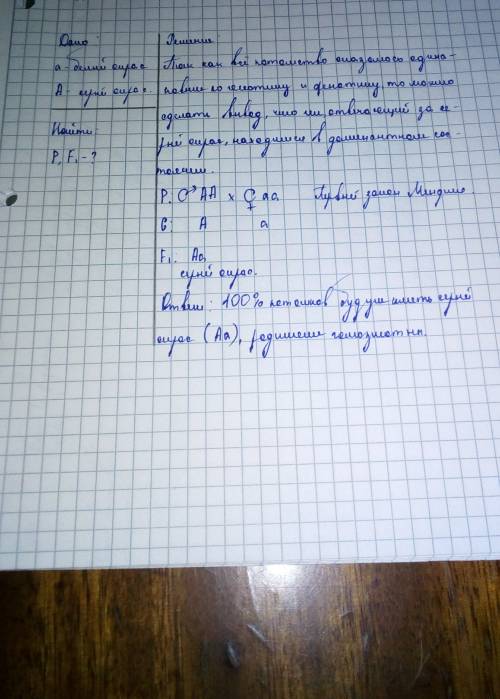 Дано:
а - белый окрас
А - серый окрас
Найти:
P, F₁ - ?
Решение:
Так как всё потомство оказалось одина-
ковым по генотипу и фенотипу, то можно
сделать вывод, что ген, отвечающий за се-
рый окрас, находился в доминантном сос-
тоянии.
P: ♂ AA x ♀ aa Первый закон Менделя.
G: A a
F₁: Aa
серый окрас.
Ответ: 100% потомков будут иметь серый
окрас (Aa), родители гомозиготны.